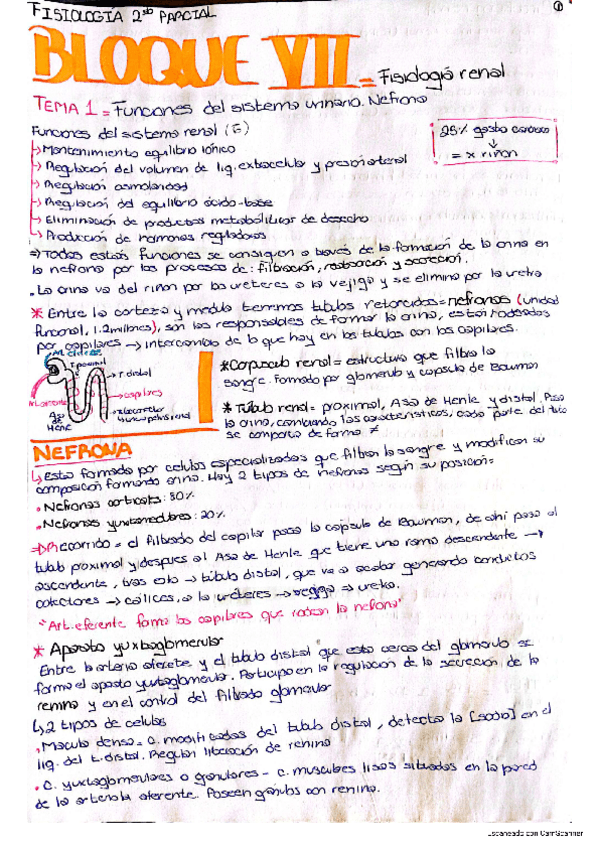 FISIOLOGÍA 2do PARCIAL
①
BLOQUE VII = Fisiología renal
TEMA 1 = Funciones del sistema urinario. Nefrona
25% gasto cardiaco
↓
= x riñon
Funciones del sistema renal (6)
↳ Mantenimiento equilibrio iónico
↳ Regulación del volumen de liq. extracelular y presión arterial
↳ Regulación osmolaridad
↳ Regulación del equilibrio ácido-base
↳ Eliminación de productos metabólicos de desecho
↳ Producción de hormonas reguladoras
⇒ Todas estas funciones se consiguen a través de la formación de la orina en
la nefrona por los procesos de: filtración, reabsorción y secreción.
· La orina va del riñon por los ureteres a la vejiga y se elimina por la uretra
* Entre la corteza y medula tenemos tubulos retorcidos = nefronas (unidad
funcional, 1.2 millones), son las responsables de formar la orina, están rodeadas
por capilares → intercambio de lo que hay en los tubulos con los capilares.
T. proximal
T. distal
capilares
Asa de Henle
* Corpusculo renal = estructura que filtra la
sangre. Formado por glomerulo y capsula de Bowman
* Tubulo renal = proximal, Asa de Henle y distal. Pasa
la orina, cambiando las características, cada parte del tubo
se comporta de forma ≠
NEFRONA
↳ Esta formada por celulas especializadas que filtran la sangre y modifican su
composición formando orina. Hay 2 tipos de nefronas según su posición =
· Nefronas corticales: 80%
· Nefronas yuxtamedulares: 20%
⇒ Recorrido = el filtrado del capilar pasa la capsula de Bowman, de ahi pasa al
tubulo proximal y despues al Asa de Henle que tiene una rama descendente →
ascendente, tras esto → túbulo distal, que va a acabar generando conductos
colectores → calices, a la ureteres → vejiga → uretra.
"Art. eferente forma los capilares que rodean la nefrona"
* Aparato yuxtaglomerular
Entre la arteria aferente y el tubulo distal que esta cerca del glomerulo se
forma el aparato yuxtaglomerular. Participa en la regulación de la secreción de la
renina y en el control del filtrado glomerular
↳ 2 tipos de celulas
· Macula densa = c. modificadas del tubulo distal, detecta la [sodio] en el
liq. del t. distal. Regulan liberación de renina
· C. yuxtaglomerulares o granulares - c. musculares lisas situadas en la pared
de la arteriola aferente. Poseen granulos con renina.
Escaneado con CamScanner